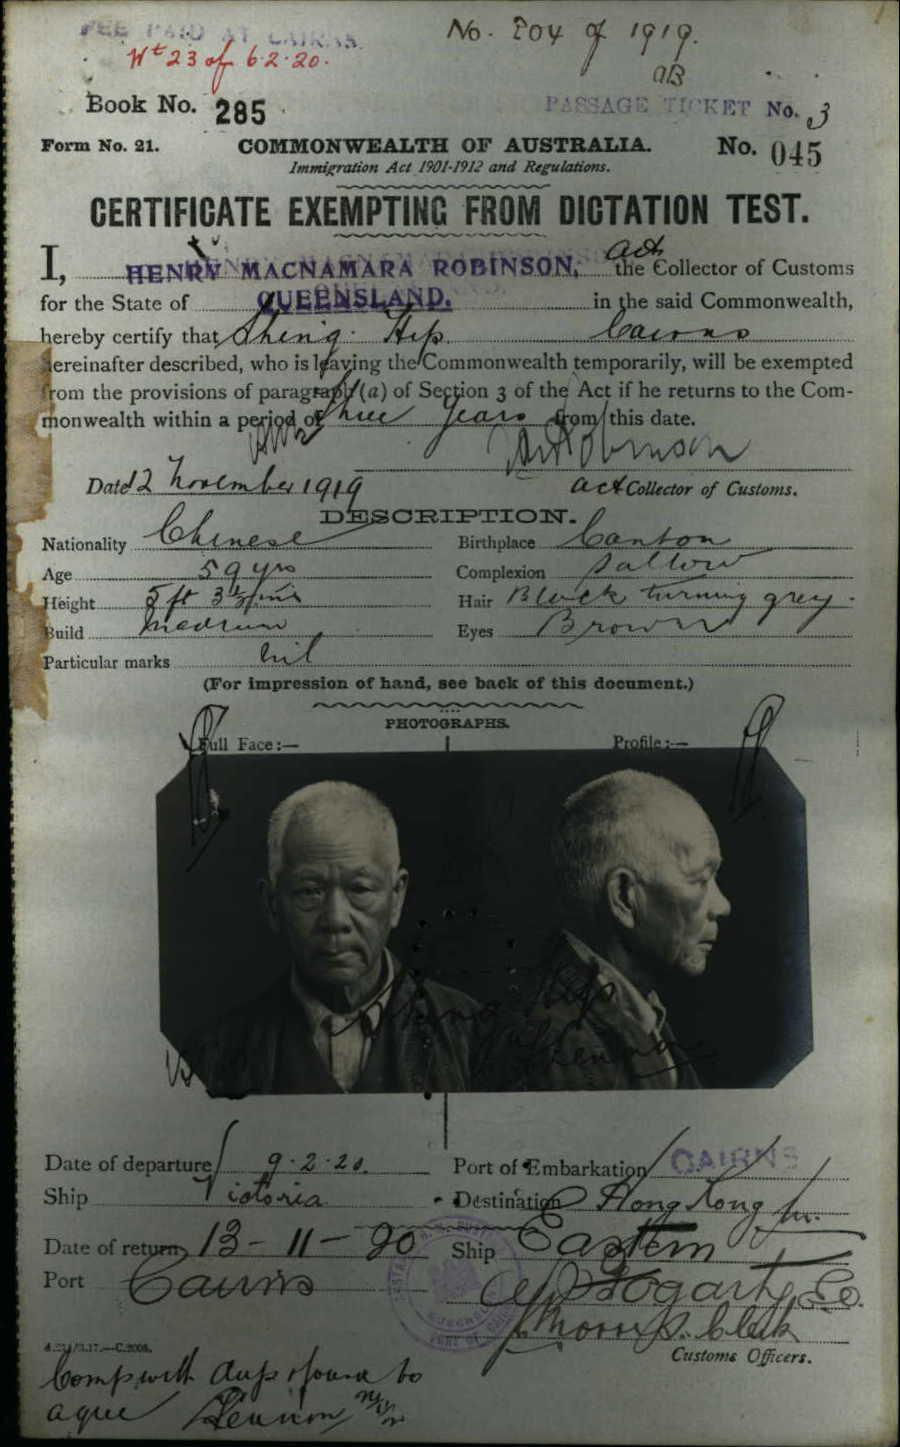 FEE PAID AT CAIRNS.
No. 204 of 1919.
Wt 23 of 6.2.20.
Book No. 285
PASSAGE TICKET No. 3
Form No. 21.
COMMONWEALTH OF AUSTRALIA.
No. 045
Immigration Act 1901-1912 and Regulations.
CERTIFICATE EXEMPTING FROM DICTATION TEST.
I, HENRY MACNAMARA ROBINSON, act the Collector of Customs
for the State of QUEENSLAND. in the said Commonwealth,
hereby certify that Shing Hip Cairns
hereinafter described, who is leaving the Commonwealth temporarily, will be exempted
from the provisions of paragraph (a) of Section 3 of the Act if he returns to the Com-
monwealth within a period of three years from this date.
Robinson
Date 12 November 1919
act Collector of Customs.
DESCRIPTION.
Nationality Chinese
Birthplace Canton
Age 59 yrs
Complexion Sallow
Height 5 ft 3½ ins
Hair Black turning grey.
Build medium
Eyes Brown
Particular marks nil
(For impression of hand, see back of this document.)
PHOTOGRAPHS.
Full Face:—
Profile:—
Shing Hip
Date of departure 9.2.20.
Port of Embarkation CAIRNS
Ship Victoria
Destination Hong Kong
Date of return 13-11-20
Ship Eastern
Port Cairns
Customs Officers.
Comp with dup & found to
agree